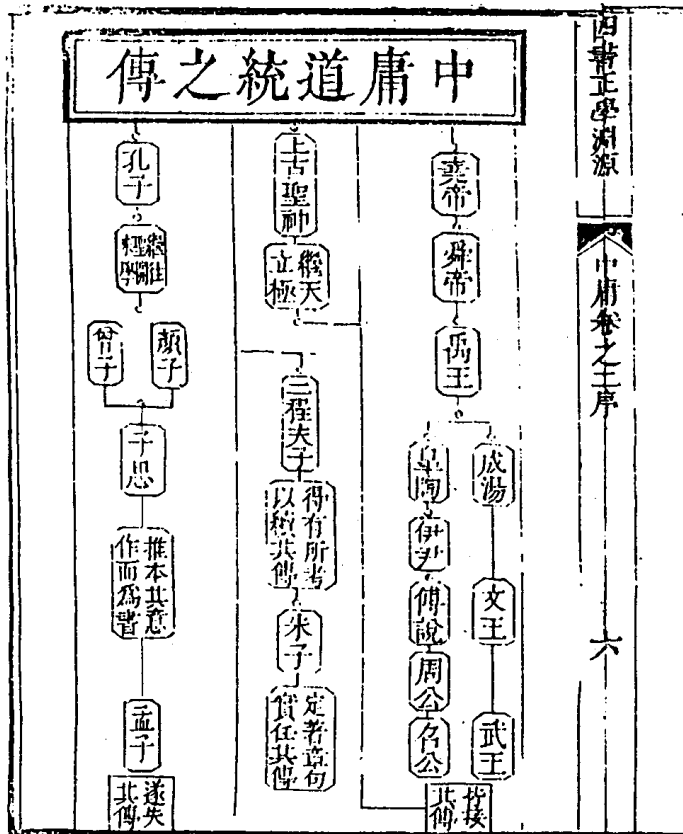 四書正學淵源
中庸卷之三序
六
中庸道統之傳
堯帝
舜帝
禹王
成湯
文王
武王
皐陶
伊尹
傅說
周公
召公
皆接
其傳
上古聖神
繼天
立極
二程夫子
得有所考
以續其傳
朱子
定著章句
實任其傳
孔子
繼往
開
學
顏子
曾子
子思
推本其意
作而爲書
孟子
遂失
其傳